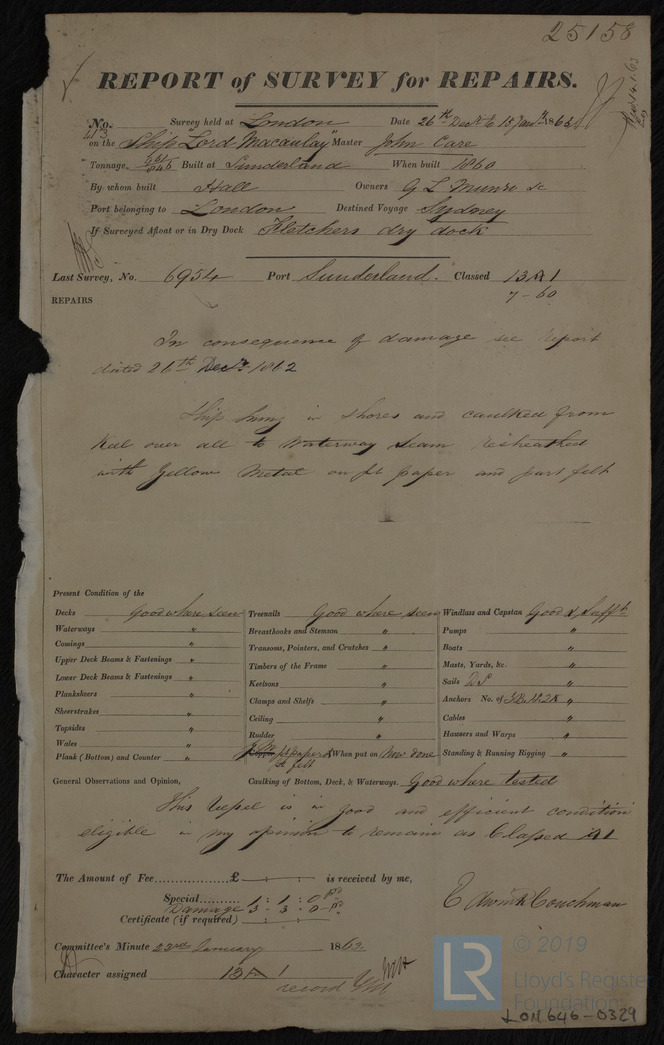 25158
REPORT of SURVEY for REPAIRS.
No. Survey held at London Date 26th Decr to 15 Jany 1863
on the Ship "Lord Macaulay" Master John Care
Tonnage Built at Sunderland When built 1860
By whom built Hall Owners G L Munro &c
Port belonging to London Destined Voyage Sydney
If Surveyed Afloat or in Dry Dock Fletchers dry dock
Last Survey, No. 6954 Port Sunderland. Classed 13 A 1
7-60
REPAIRS
In consequence of damage see report
dated 26th Decr 1862
Ship hung in shores and caulked from
Keel over all to Waterway Seam resheathed
with Yellow Metal on pt paper and part felt
Present Condition of the
Decks Good where seen
Waterways "
Comings "
Upper Deck Beams & Fastenings "
Lower Deck Beams & Fastenings "
Planksheers "
Sheerstrakes "
Topsides "
Wales "
Plank (Bottom) and Counter "
Treenails Good where seen
Breasthooks and Stemson "
Transoms, Pointers, and Crutches "
Timbers of the Frame "
Keelsons "
Clamps and Shelfs "
Ceiling "
Rudder "
Y.M. pt paper & When put on Now done
pt felt
Windlass and Capstan Good & Sufft
Pumps "
Boats "
Masts, Yards, &c. "
Sails "
Anchors No. of 3B. 1S. 2K "
Cables "
Hawsers and Warps "
Standing & Running Rigging "
General Observations and Opinion, Caulking of Bottom, Deck, & Waterways. Good where tested
This Vessel is in good and efficient condition
eligible in my opinion to remain as Classed A1
The Amount of Fee £ : : is received by me,
Special 1 : 1 : 0 pd
Damage 3 : 3 : 0 pd
Certificate (if required) : :
Edwin Couchman
Committee's Minute 23rd January 1863
Character assigned 13 A 1
record YM
LR © 2019
Lloyd's Register
Foundation
LON646-0329